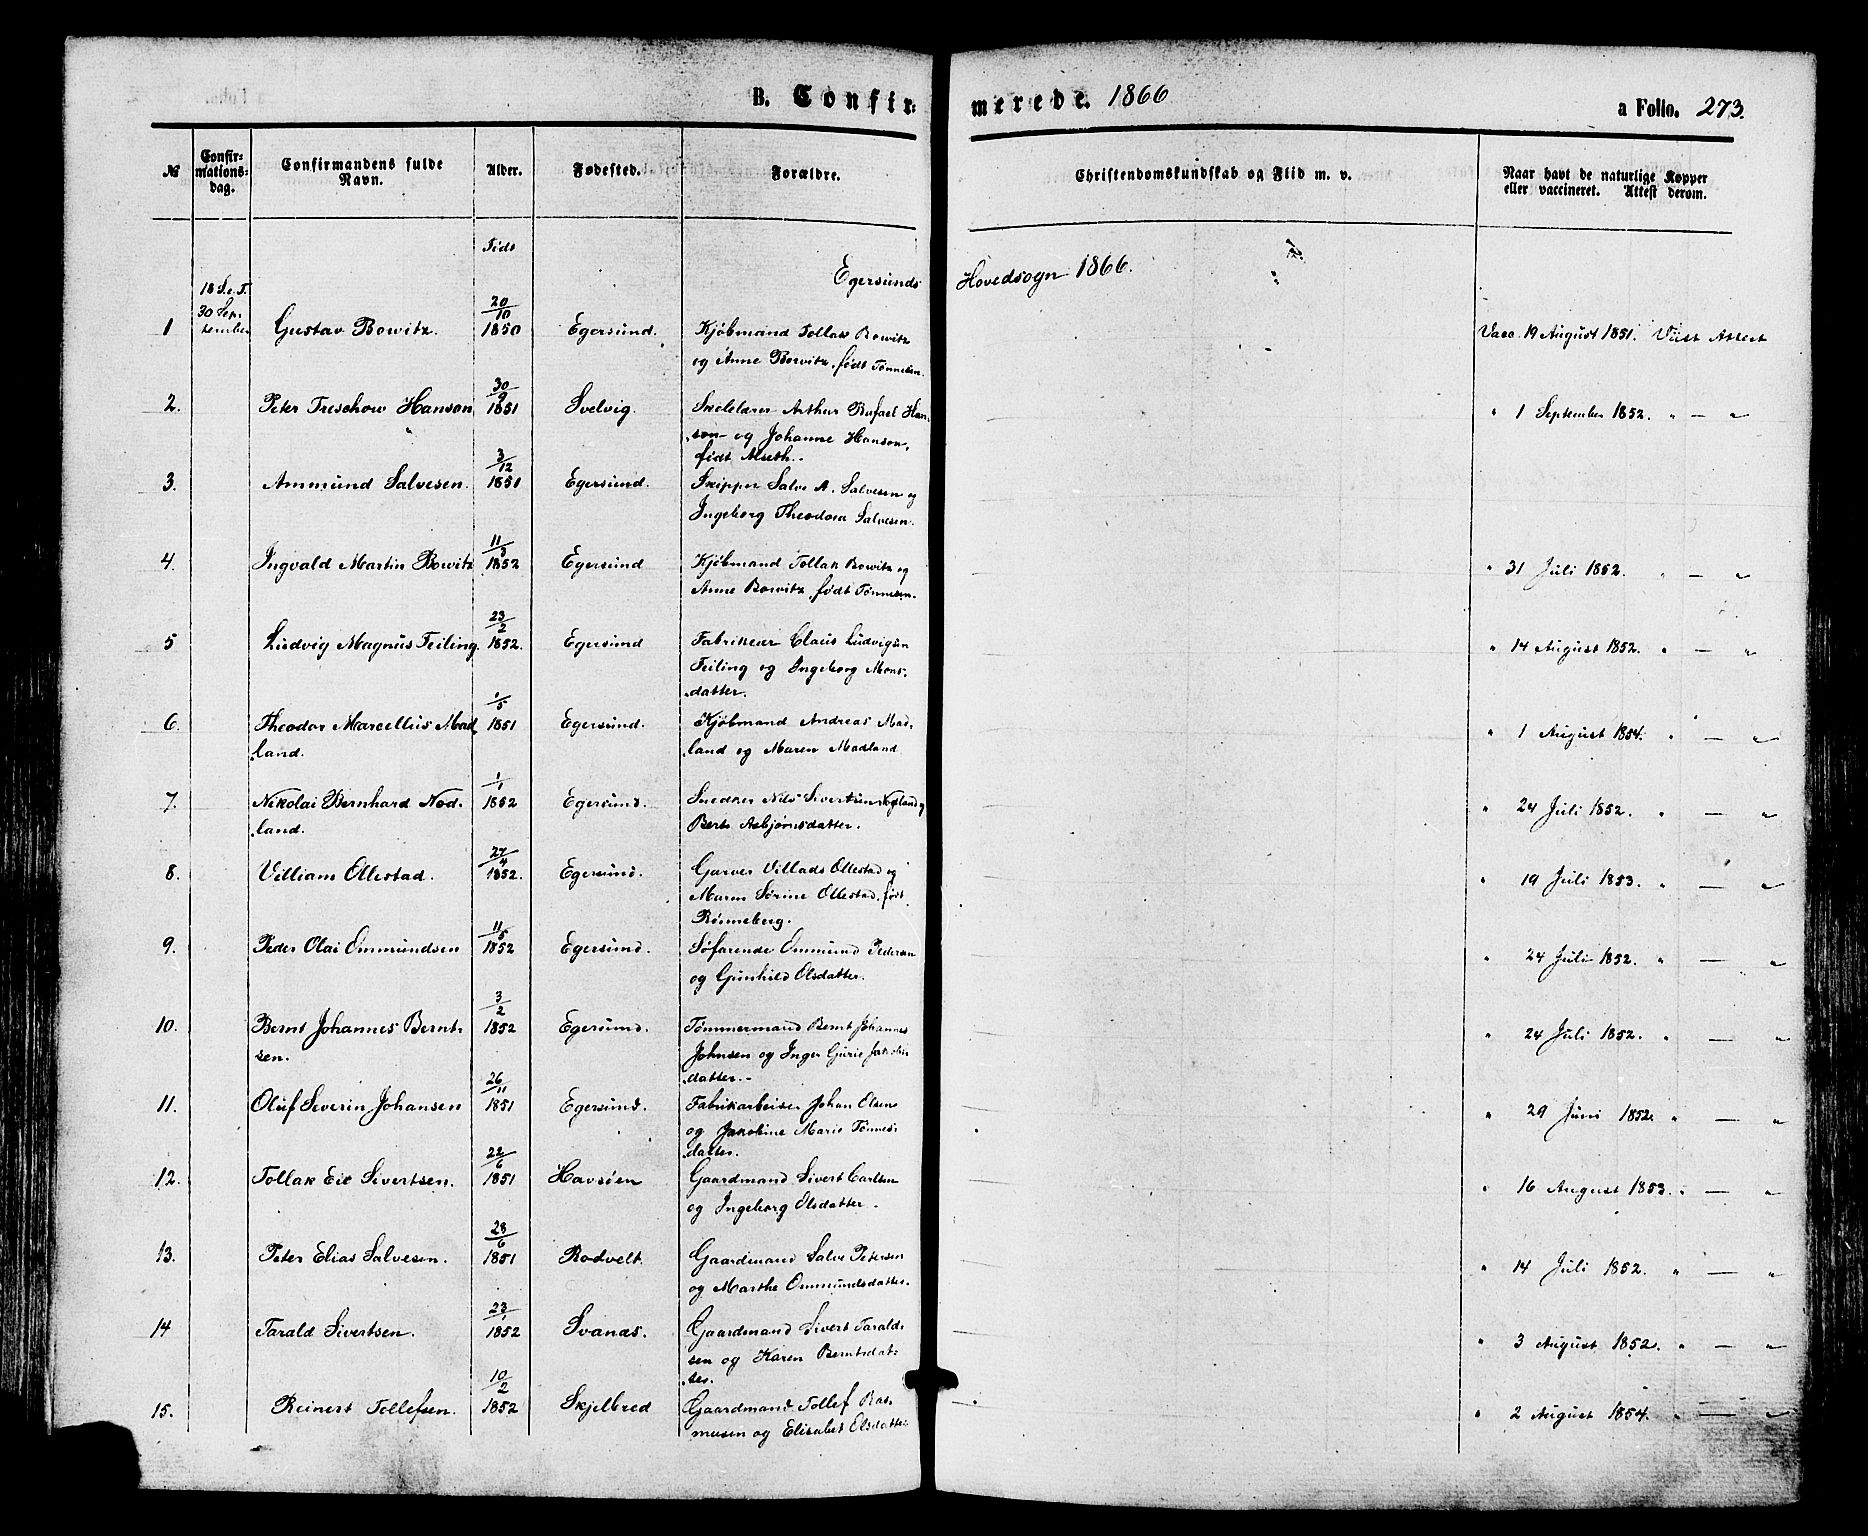 B. Confir- merede. 1866 a Folio. 273.
№ Confir-mations-dag. Confirmandens fulde Navn. Alder. Fødested. Forældre. Christendomskundskab og Flid m. v. Naar havt de naturlige Kopper eller vaccineret. Attest derom.
Født
Egersunds Hovedsogn 1866.
18 S. e. T.
30 Sep-
tember
1 Gustav Bowitz. 20/10 1850 Egersund. Kjøbmand Tollak Bowitz Vacc. 19 August 1851. Viist Attest
og Anne Bowitz, født Tønnesen.
2. Peter Treschow Hanson 30/9 1851 Svelvig. Skolelærer Arthur Rafael Han- " 1 September 1852. " — "
son og Johanne Hanson,
født Alseth.
3. Ammund Salvesen. 3/12 1851 Egersund. Skipper Salve A. Salvesen og
Ingeborg Theodora Salvesen.
4. Ingvald Martin Bowitz 11/3 1852 Egersund Kjøbmand Tollak Bowitz og " 31 Juli 1852. " — "
Anne Bowitz, født Tønnesen.
5 Ludvig Magnus Feiling. 23/2 1852. Egersund Fabrikeur Claus Ludvigsen " 14 August 1852. " — "
Feiling og Ingeborg Mons-
datter.
6. Theodor Marcellius Mad- 1/5 1851 Egersund. Kjøbmand Andreas Mad- " 1 August 1854. " — "
land. land og Maren Madland
7. Nikolai Bernhard Nod- 1/1 1852 Egersund. Snedker Nils Sivertsen Nodland og " 24 Juli 1852. " — "
land. Berte Asbjørnsdatter.
8. Villiam Ollestad. 27/4 1852. Egersund. Garver Villads Ollestad og " 19 Juli 1853. " — "
Maren Sørine Ollestad, født
Rønneberg.
9. Peder Olai Ommundsen 11/5 1852 Egersund. Søfarende Ommund Pedersen " 24 Juli 1852. " — "
og Gunhild Olsdatter.
10. Bernt Johannes Bernt- 3/2 1852 Egersund. Tømmermand Bernt Johannes " 24 Juli 1852. " — "
sen. Johnsen og Inger Gurie Jakobs-
datter.
11. Oluf Severin Johansen 26/11 1851 Egersund. Fabrikarbeider Johan Olsen " 29 Juni 1852. " — "
og Jakobine Marie Tønnes-
datter.
12. Tollak Eie Sivertsen. 22/6 1851 Havsøen Gaardmand Sivert Carlsen " 16 August 1853. " — "
og Ingeborg Olsdatter.
13. Peter Elias Salvesen. 28/6 1851 Rodvelt. Gaardmand Salve Petersen " 14 Juli 1852. " — "
og Marthe Ommundsdatter.
14 Tarald Sivertsen. 23/1 1852 Svanæs. Gaardmand Sivert Tarald- " 3 August 1852. " — "
sen og Karen Berntsdat-
ter.
15. Reinert Tollefsen. 10/2 1852 Skjelbred Gaardmand Tollef Ras- " 2 August 1854. " — "
musen og Elisabet Olsdatter